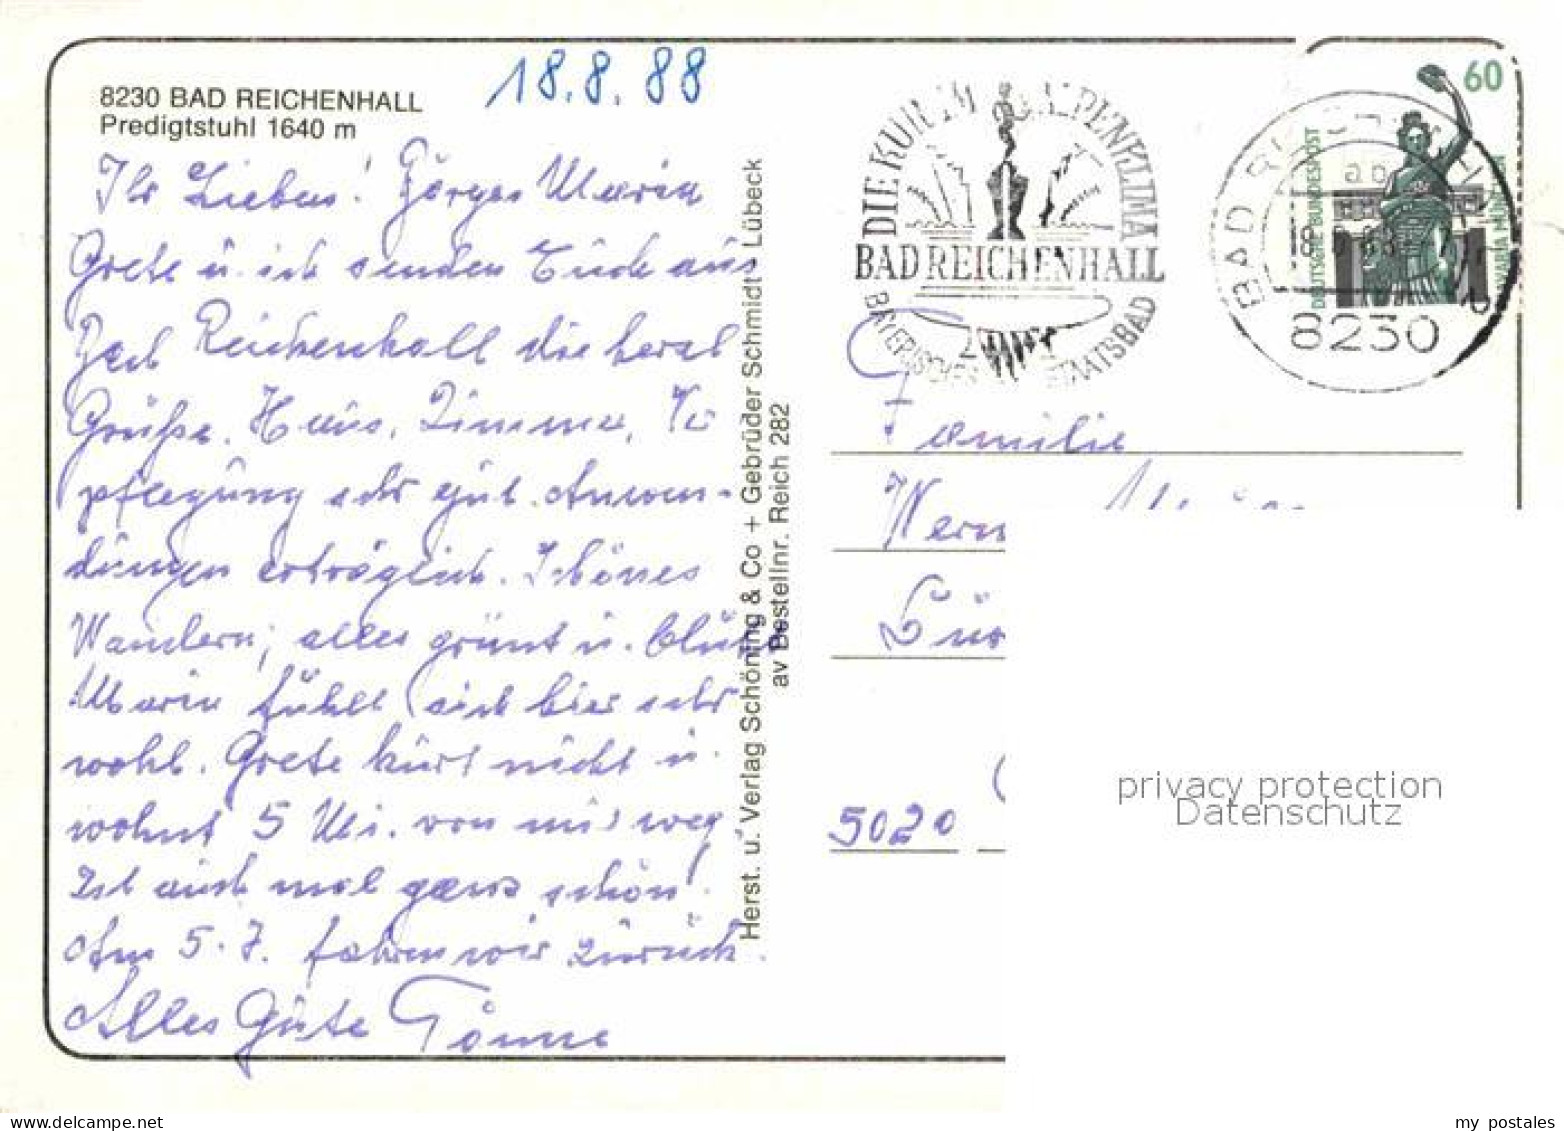 8230 BAD REICHENHALL
Predigtstuhl 1640 m
18.8.88
Ihr Lieben! Marin
Grete u. ich senden Euch aus
Bad Reichenhall die herzl
Grüße. Haus, Zimmer, Ver
pflegung sehr gut. Anwen-
dungen erträglich. Schönes
Wandern, alles grünt u. blüht
Marin fühlt sich hier sehr
wohl. Grete kurt nicht u.
wohnt 5 Mi. von mir weg
Ist auch mal ganz schön!
Am 5.7. fahren wir zurück.
Alles Gute Tönne
Herst. u. Verlag Schöning & Co + Gebrüder Schmidt Lübeck
av Bestellnr. Reich 282
DIE KUR IM ALPENKLIMA
BAD REICHENHALL
BAYERISCHES STAATSBAD
BAD
8230
60
DEUTSCHE BUNDESPOST
Familie
5020
privacy protection
Datenschutz
my postales